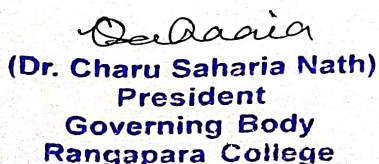 (Dr. Charu Saharia Nath)
President
Governing Body
Rangapara College